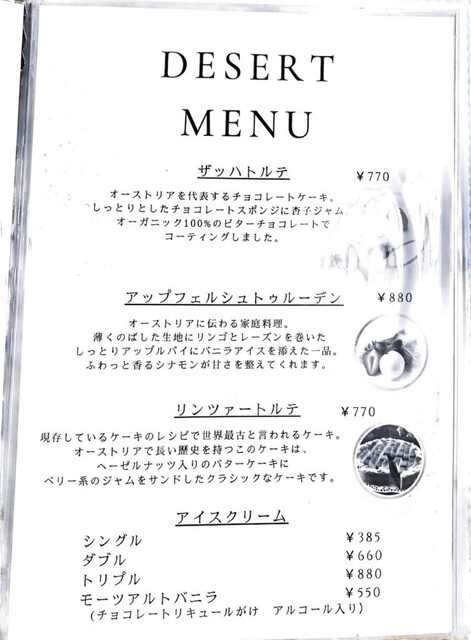 DESERT
MENU
ザッハトルテ ¥770
オーストリアを代表するチョコレートケーキ。
しっとりとしたチョコレートスポンジに杏子ジャム
オーガニック100%のビターチョコレートで
コーティングしました。
アップフェルシュトゥルーデン ¥880
オーストリアに伝わる家庭料理。
薄くのばした生地にリンゴとレーズンを巻いた
しっとりアップルパイにバニラアイスを添えた一品。
ふわっと香るシナモンが甘さを整えてくれます。
リンツァートルテ ¥770
現存しているケーキのレシピで世界最古と言われるケーキ。
オーストリアで長い歴史を持つこのケーキは、
ヘーゼルナッツ入りのバターケーキに
ベリー系のジャムをサンドしたクラシックなケーキです。
アイスクリーム
シングル ¥385
ダブル ¥660
トリプル ¥880
モーツアルトバニラ ¥550
(チョコレートリキュールがけ アルコール入り)